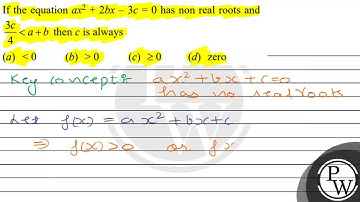 If the equation ax² + 2bx – 3c = 0 has non real roots and
3c/4 < a + b then c is always
(a) < 0 (b) > 0 (c) ≥ 0 (d) zero
Key concept:- ax²+bx+c=0
has no real roots
Let f(x) = ax²+bx+c
⇒ f(x)>0 or fx
PW